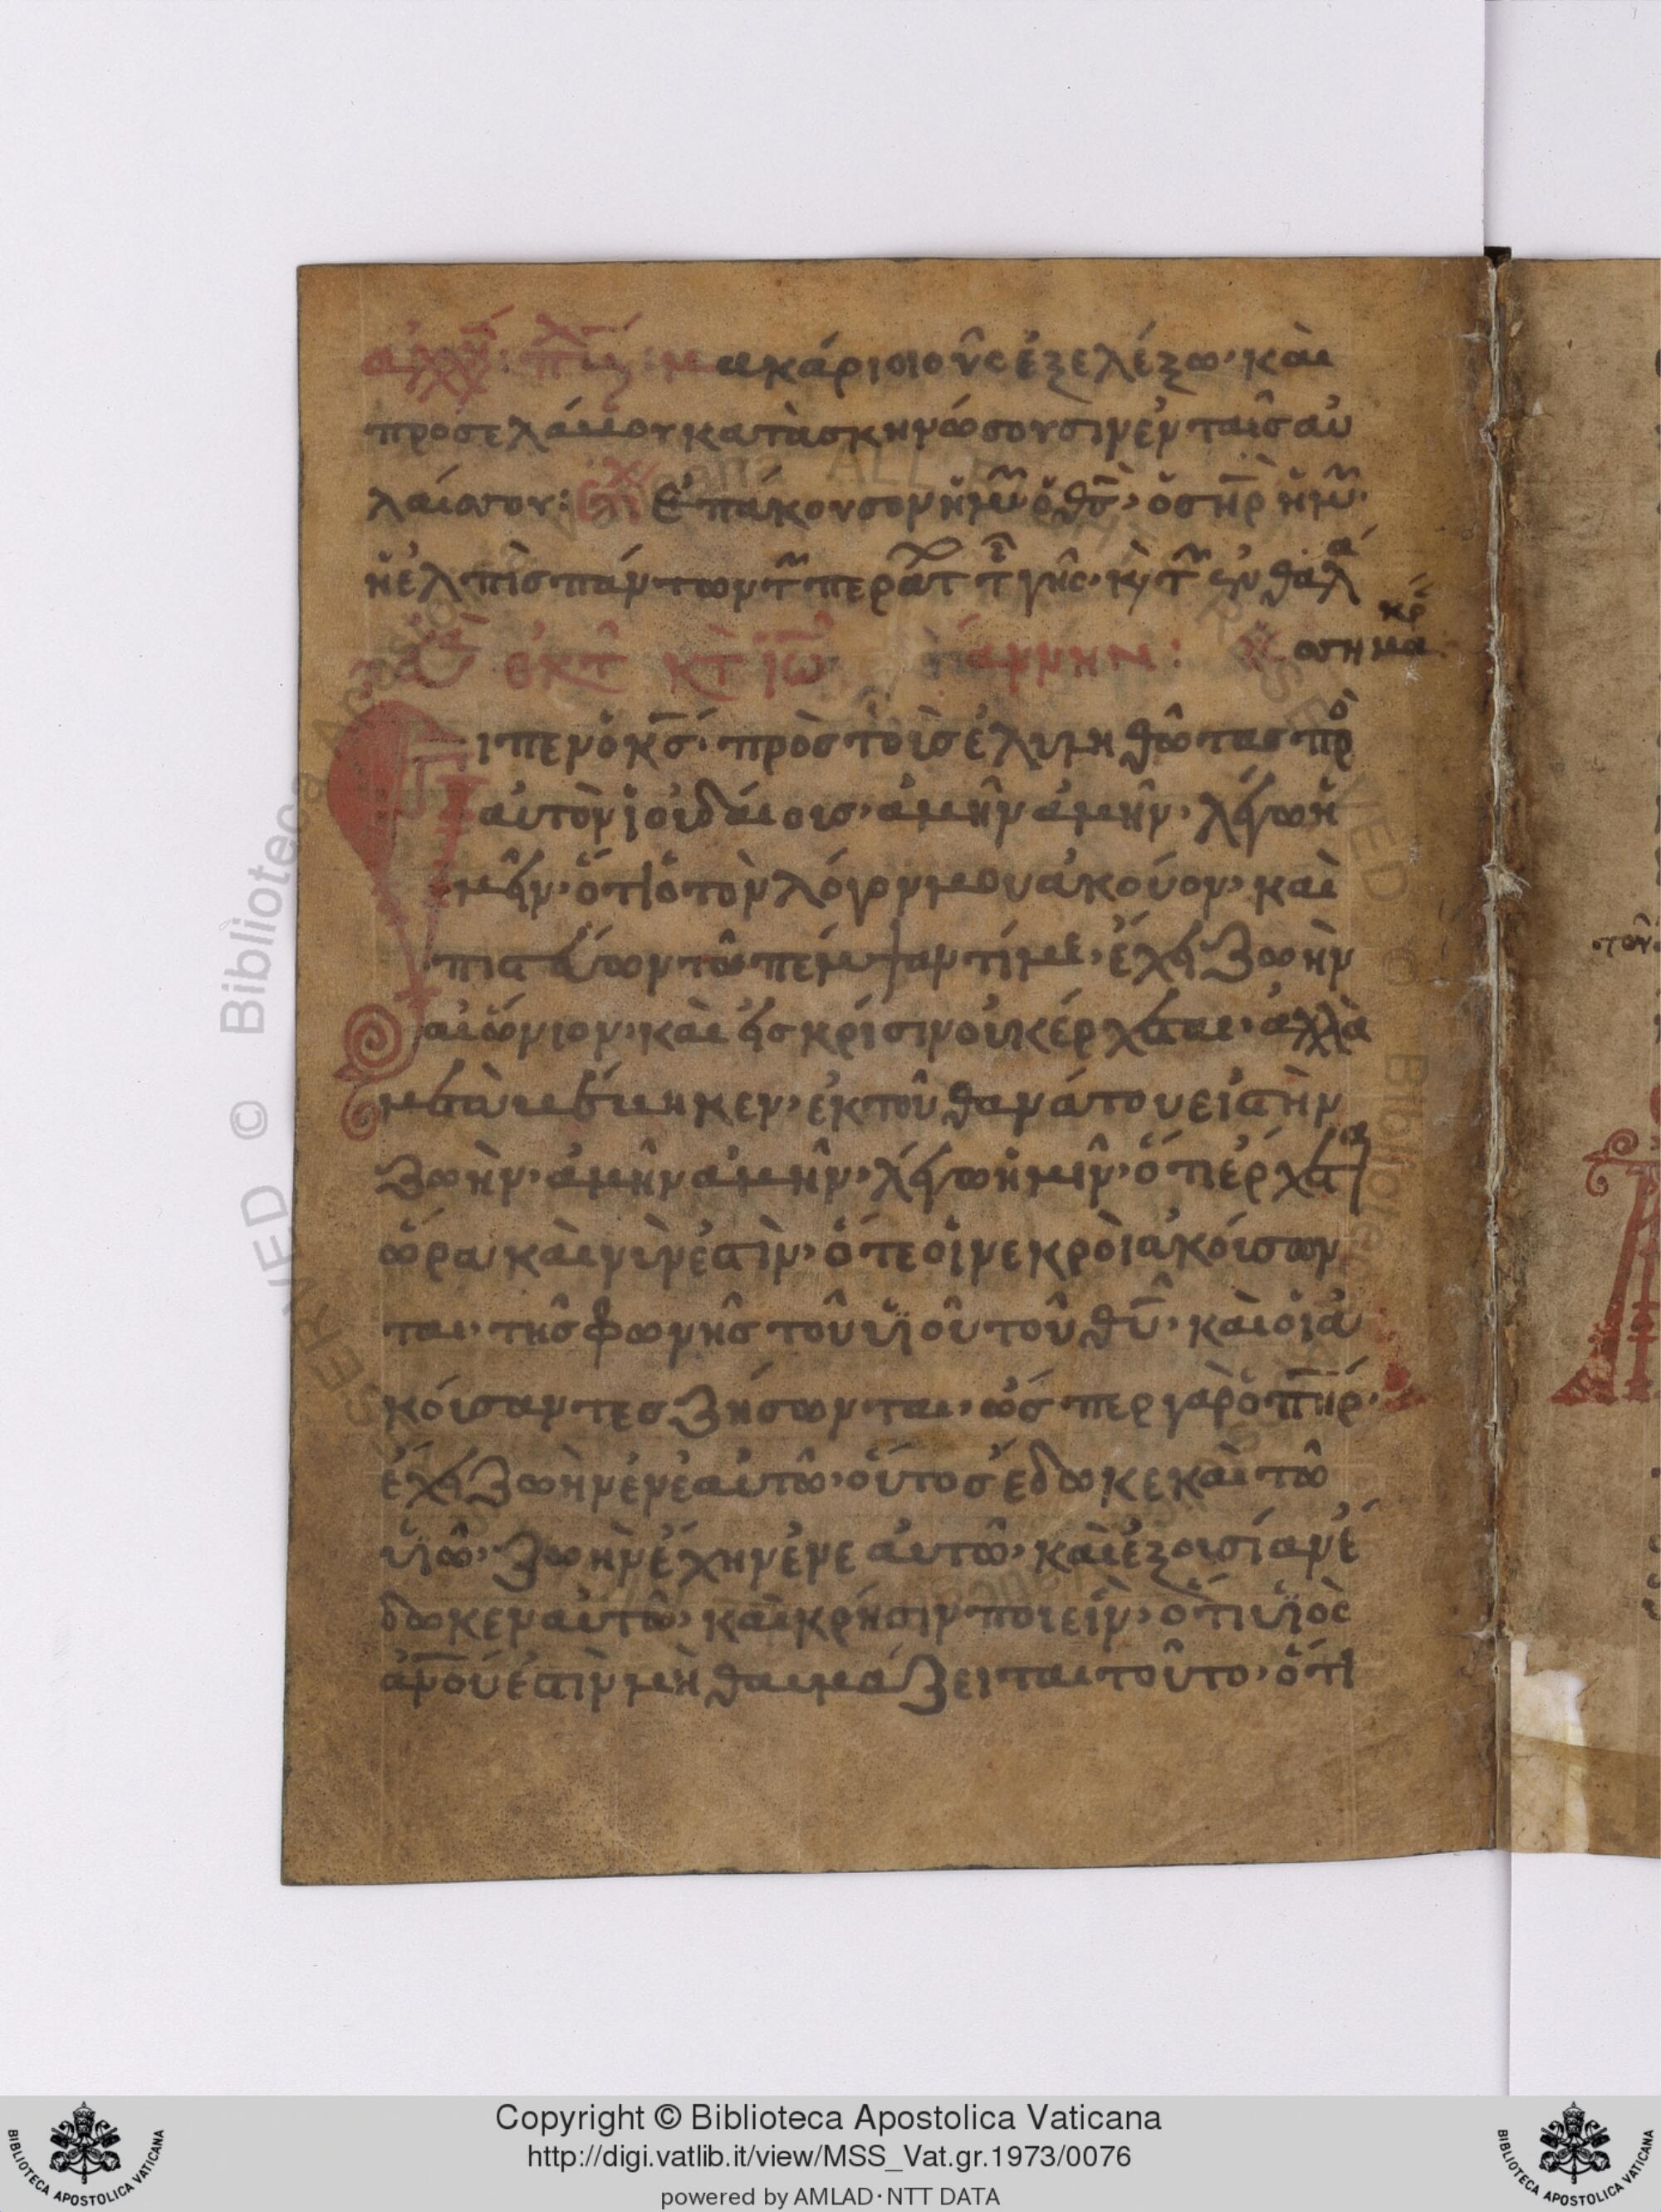 μακάριοι οὓς ἐξελέξω· καὶ
προσελάβου κατὰσκηνώσουσιν ἐν ταῖς αὐ
λαίς σου: Ἐπάκουσον ἡμῶν ὁ θς̄· ὁ σηρ̄ ἡμῶν·
ἡ ἐλπὶς πάντων τ περατ τ γῆς· κ τ ἐν θαλ
ἐκ τ κτ ἰω
ιπεν ὁ κς̄· πρὸς τοὶς ἐλιμηθῶτας πρ
αὐτὸν ϊοιδάιοις· ἀμὴν ἀμὴν· λέγω ἡ
μεῖν· ὅτι ὁ τὸν λόγον μου ἀκούον· καὶ
πιστέβων τῶ πέμψαντί με· ἔχει ζωὴν
αἰώνιον· καὶ εἰς κρίσιν οὐκ έρχεται· ἀλλὰ
μεταβέβηκεν· ἐκ τοῦ θανάτου εἰστὴν
ζωὴν· ἀμὴν ἀμὴν· λέγω ἡμῖν· ὅτι ἐρχετ
ὥρα καὶ νὶν ἐστὶν· ὅτε οἱ νεκρὸι ἀκόισων
ται· τῆς φωνῆς τοῦ ὑϊοῦ τοῦ θῡ· καὶ οἱ ἀ
κόισαντες ζήσωνται· ὥσπερ γὰρ ὁ πηρ̄·
ἔχει ζωὴν ἐν ἑαυτῶ· οὕτος έδωκε καὶ τῶ
ὑϊῶ· ζωὴν ἔχην ἐν ε αυτῶ· καὶ ἐξοισίαν ἔ
δωκεν αὐτῶ· καὶ κρήσιν ποιεὶν· ὅτι ὑϊὸς
ἀνο̄ύ ἐστὶν μὴ θαυμάζειται τοῦτο· ὅτι
Copyright © Biblioteca Apostolica Vaticana
http://digi.vatlib.it/view/MSS_Vat.gr.1973/0076
powered by AMLAD·NTT DATA
BIBLIOTECA APOSTOLICA VATICANA
BIBLIOTECA APOSTOLICA VATICANA